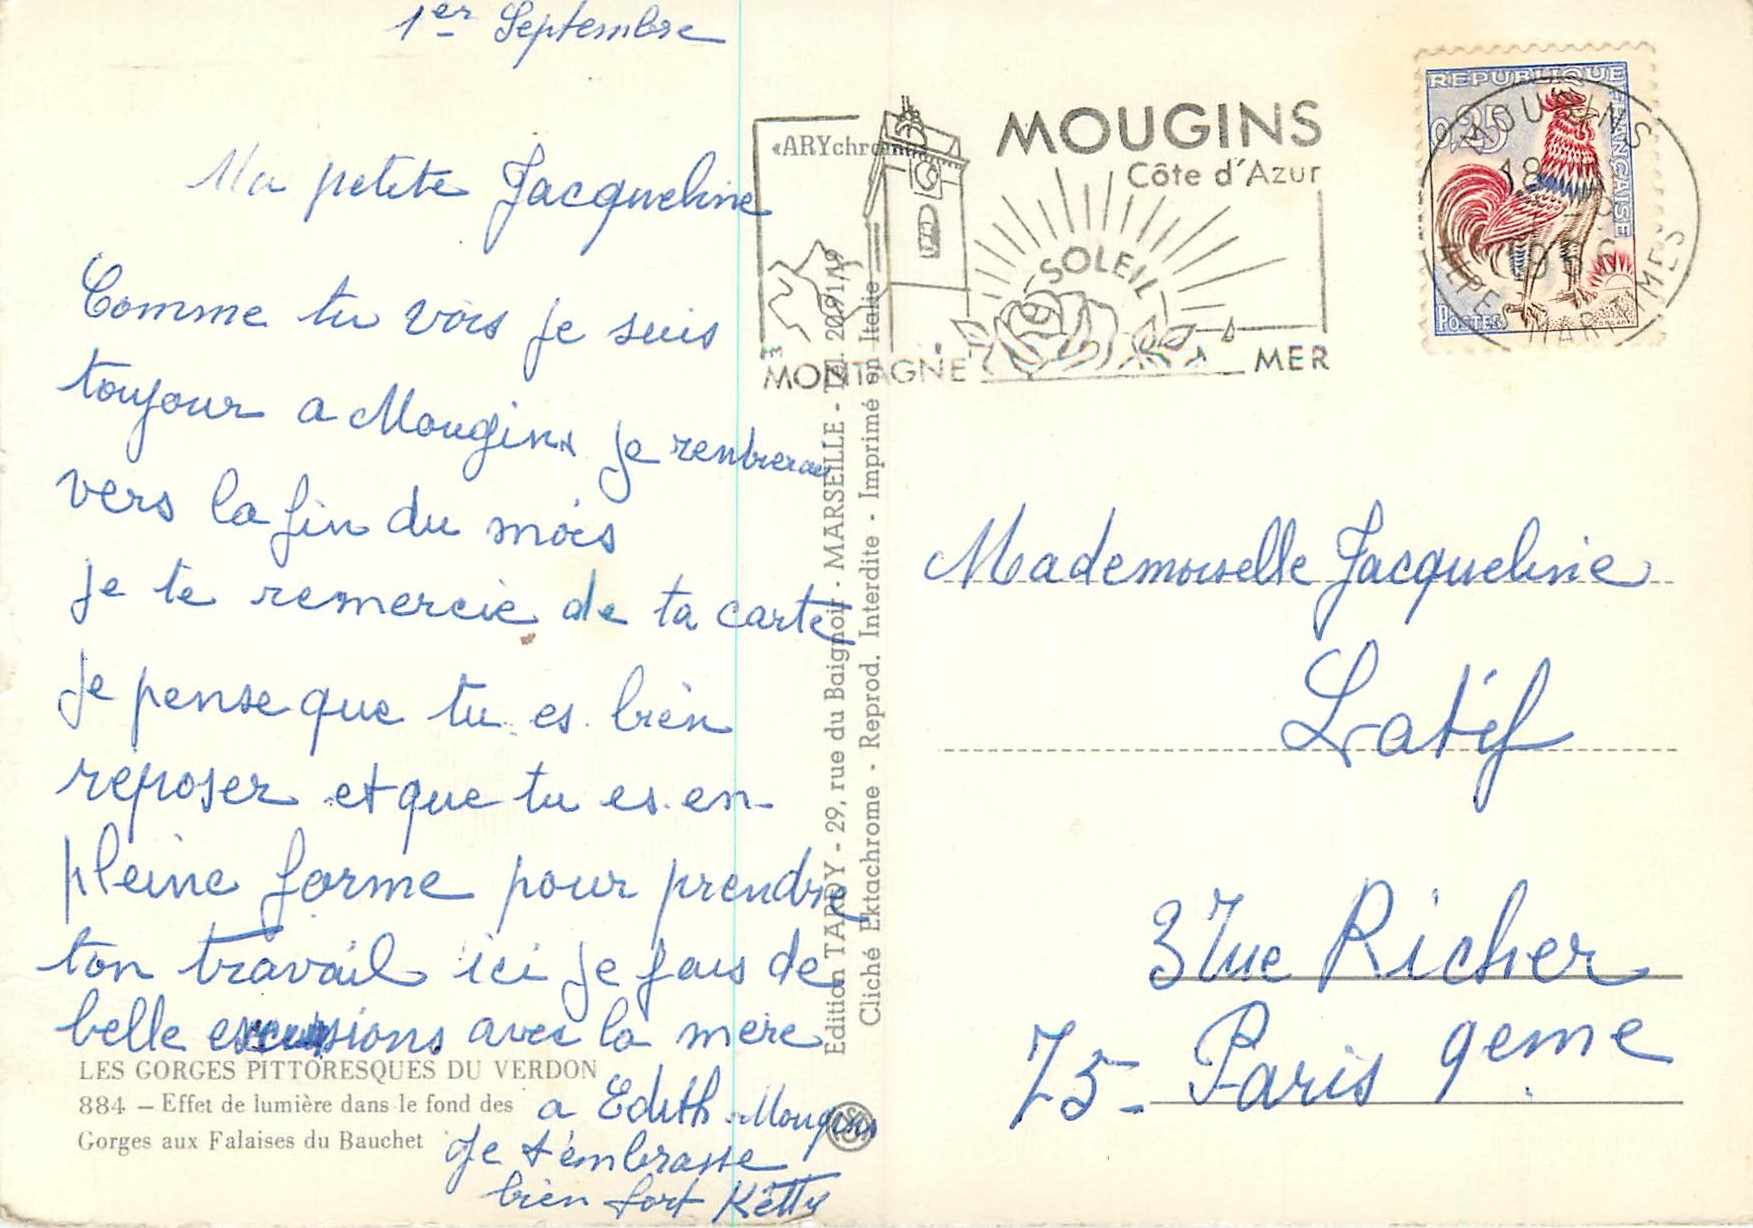 1er Septembre
Ma petite Jacqueline
Comme tu vois je suis
toujour a Mougins je rentrerai
vers la fin du mois
je te remercie de ta carte
je pense que tu es bien
reposer et que tu es en
pleine forme pour prendre
ton travail ici je fais de
belle excursions avec la mère
a Edith Mougins
Je t'embrasse
bien fort Ketty
LES GORGES PITTORESQUES DU VERDON
884 – Effet de lumière dans le fond des
Gorges aux Falaises du Bauchet
Edition TARDY - 29, rue du Baignoir - MARSEILLE - Tél. 20.91/19
Cliché Ektachrome - Reprod. Interdite - Imprimé en Italie
«ARYchrome»
MOUGINS
Côte d'Azur
SOLEIL
MONTAGNE
MER
REPUBLIQUE FRANÇAISE
0,25
POSTES
MOUGINS
18
ALPES MARITIMES
Mademoiselle Jacqueline
Latif
37ue Richer
75- Paris 9eme